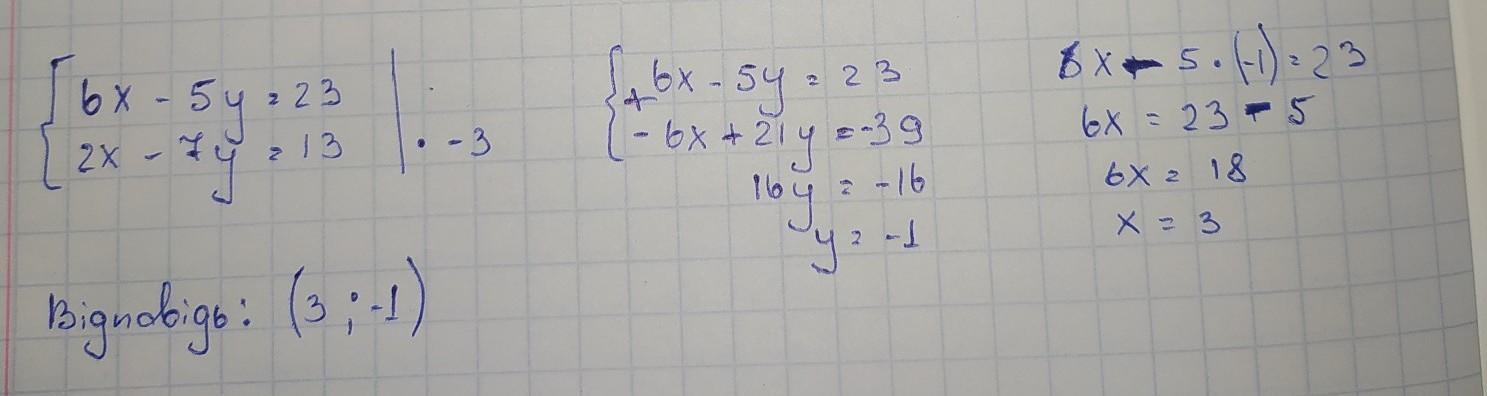 6x - 5y = 23
2x - 7y = 13 | · -3
+ 6x - 5y = 23
- 6x + 21y = -39
16y = -16
y = -1
6x - 5 · (-1) = 23
6x = 23 - 5
6x = 18
x = 3
Відповідь: (3 ; -1)